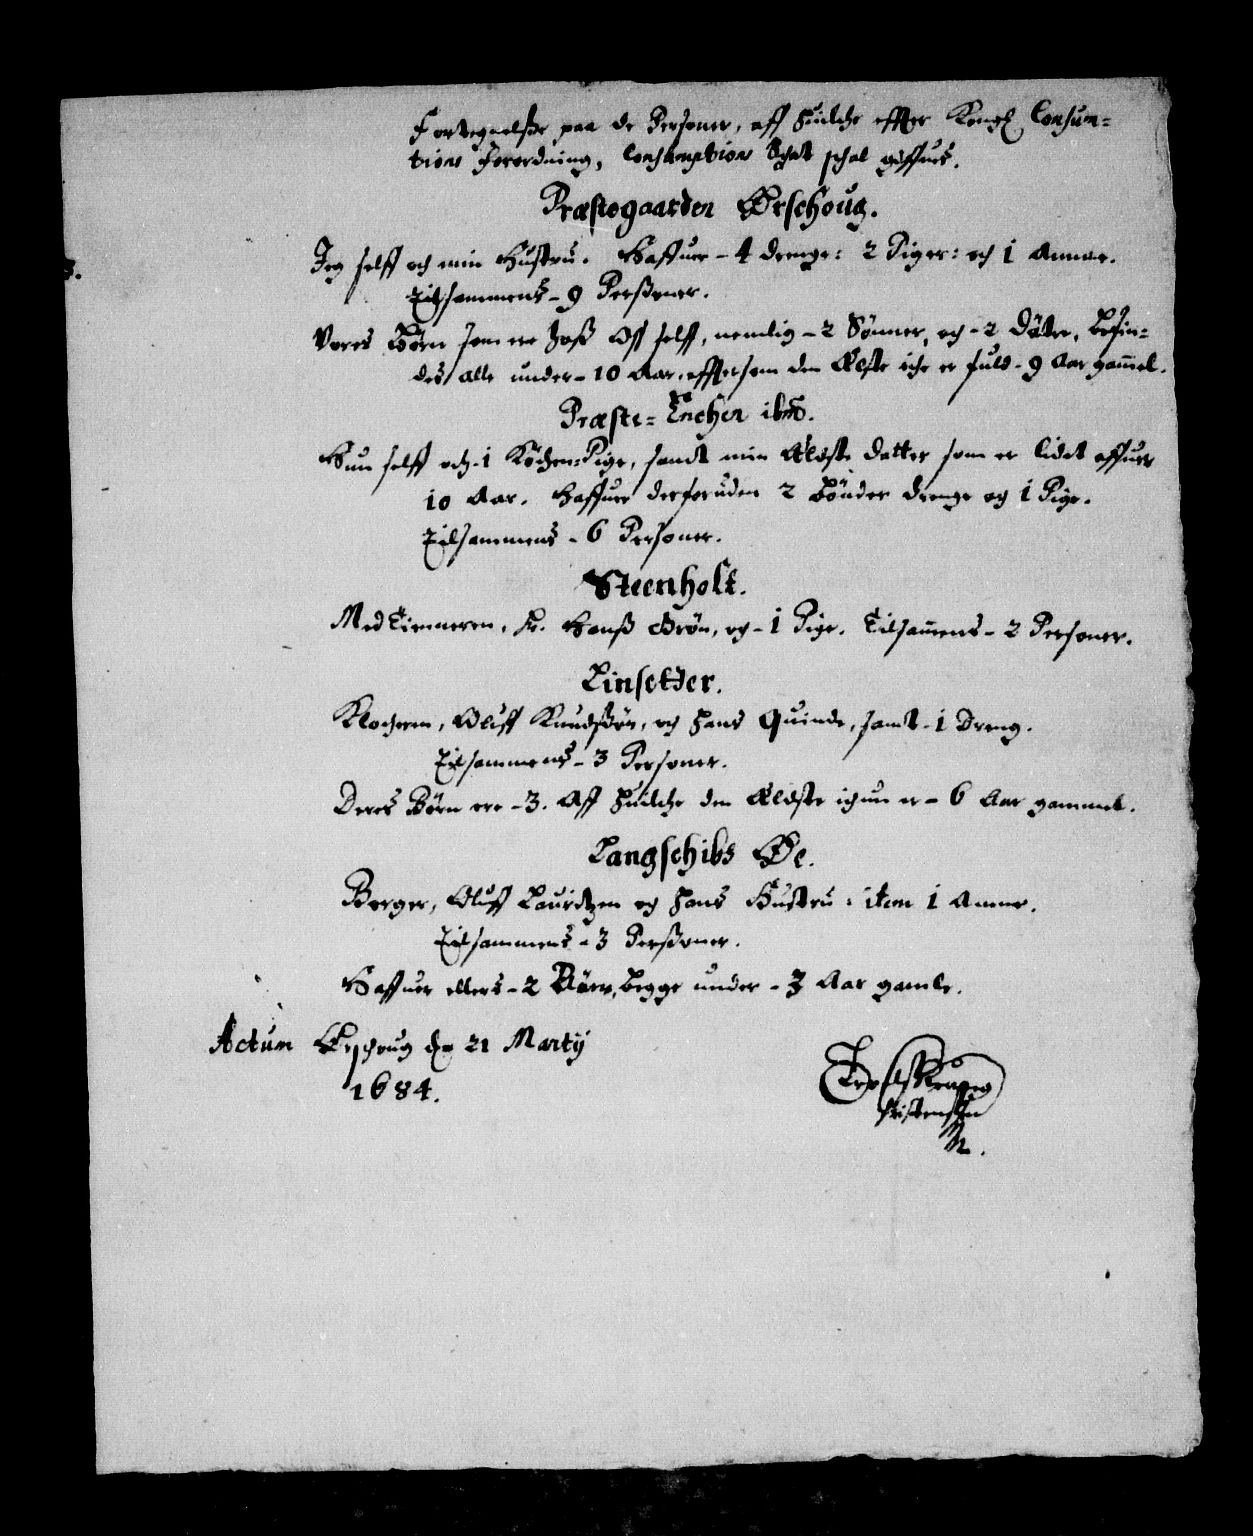 Fortegnelsse paa de Personer, aff huilche effter Kongl Consum=
tions Forordning, Consumptions Schat schal giffues.
Præstegaarden Ørschoug.
Jeg selff och min Hustru. Haffuer - 4 drenge: 2 Piger: och 1 Amme.
Tilsammens - 9 Perssoner.
Vores Børn som ere hoss Oss selff, nemlig - 2 Sønner, och - 2 Døttre, befin=
des alle under - 10 Aar, efftersom den Ælste iche er fuld - 9 Aar gam̄el.
Præste= Enchen ibm.
Hun selff och - 1 Köchen=Pige, sandt min Ældste datter som er lidet offuer
10 Aar. Haffuer desforuden 2 bönder drenge og 1 Pige.
Tilsammens - 6 Personer.
Steenholt.
Med Tienneren, Hr. Hanss Brön, og - 1 Pige. Tilsam̄ens - 2 Personer.
Linsetter.
Klocheren, Oluff Knudssön, och hans Quinde, samt - 1 Dreng.
Tilsammens - 3 Personer.
Deres Börn ere - 3. Aff huilche den Ældste ichun er - 6 Aar gammel.
Langschibs Øe.
Borger, Oluff Lauridtzen og hans Hustru: item 1 Amme.
Tilsammens - 3 Perssoner.
Haffuer ellers - 2 Börn, begge under - 3 Aar gamle.
Actum Ørschoug den 21 Martij
1684.
Troels
Kristenssön